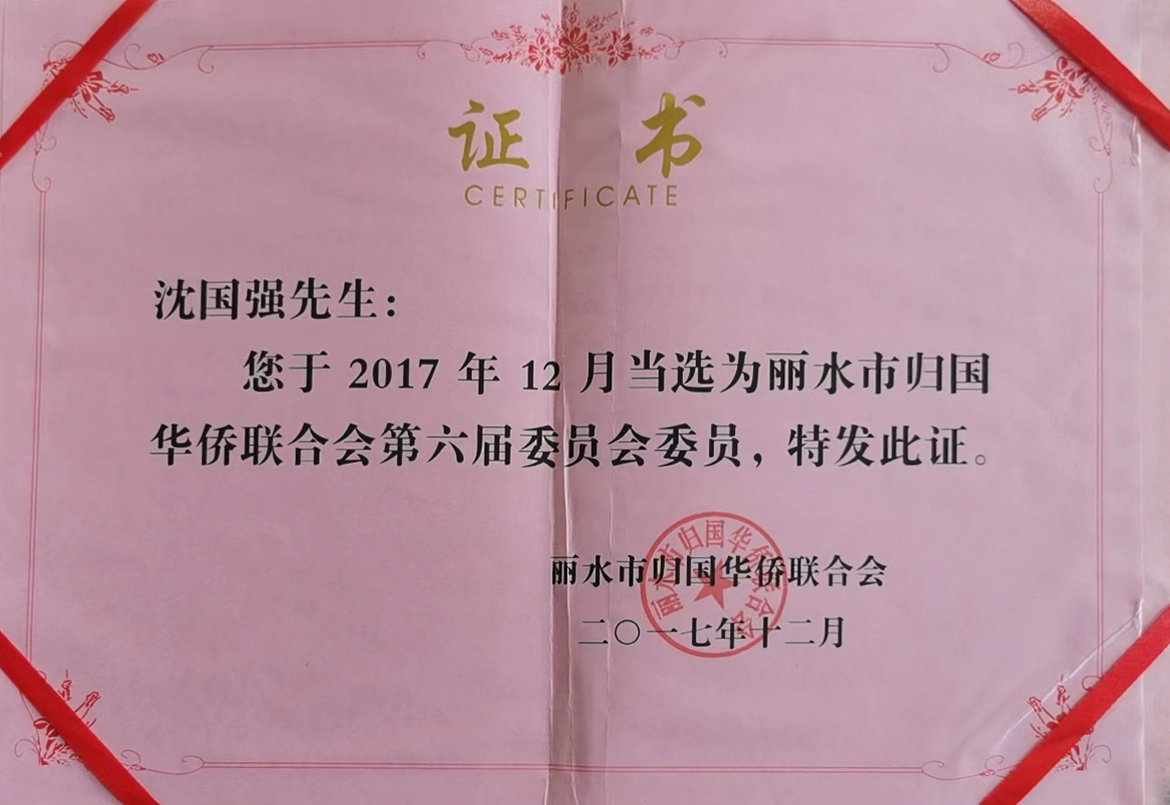 证 书
CERTIFICATE
沈国强先生：
您于 2017 年 12 月当选为丽水市归国
华侨联合会第六届委员会委员，特发此证。
丽水市归国华侨联合会
二〇一七年十二月
丽水市归国华侨联合会